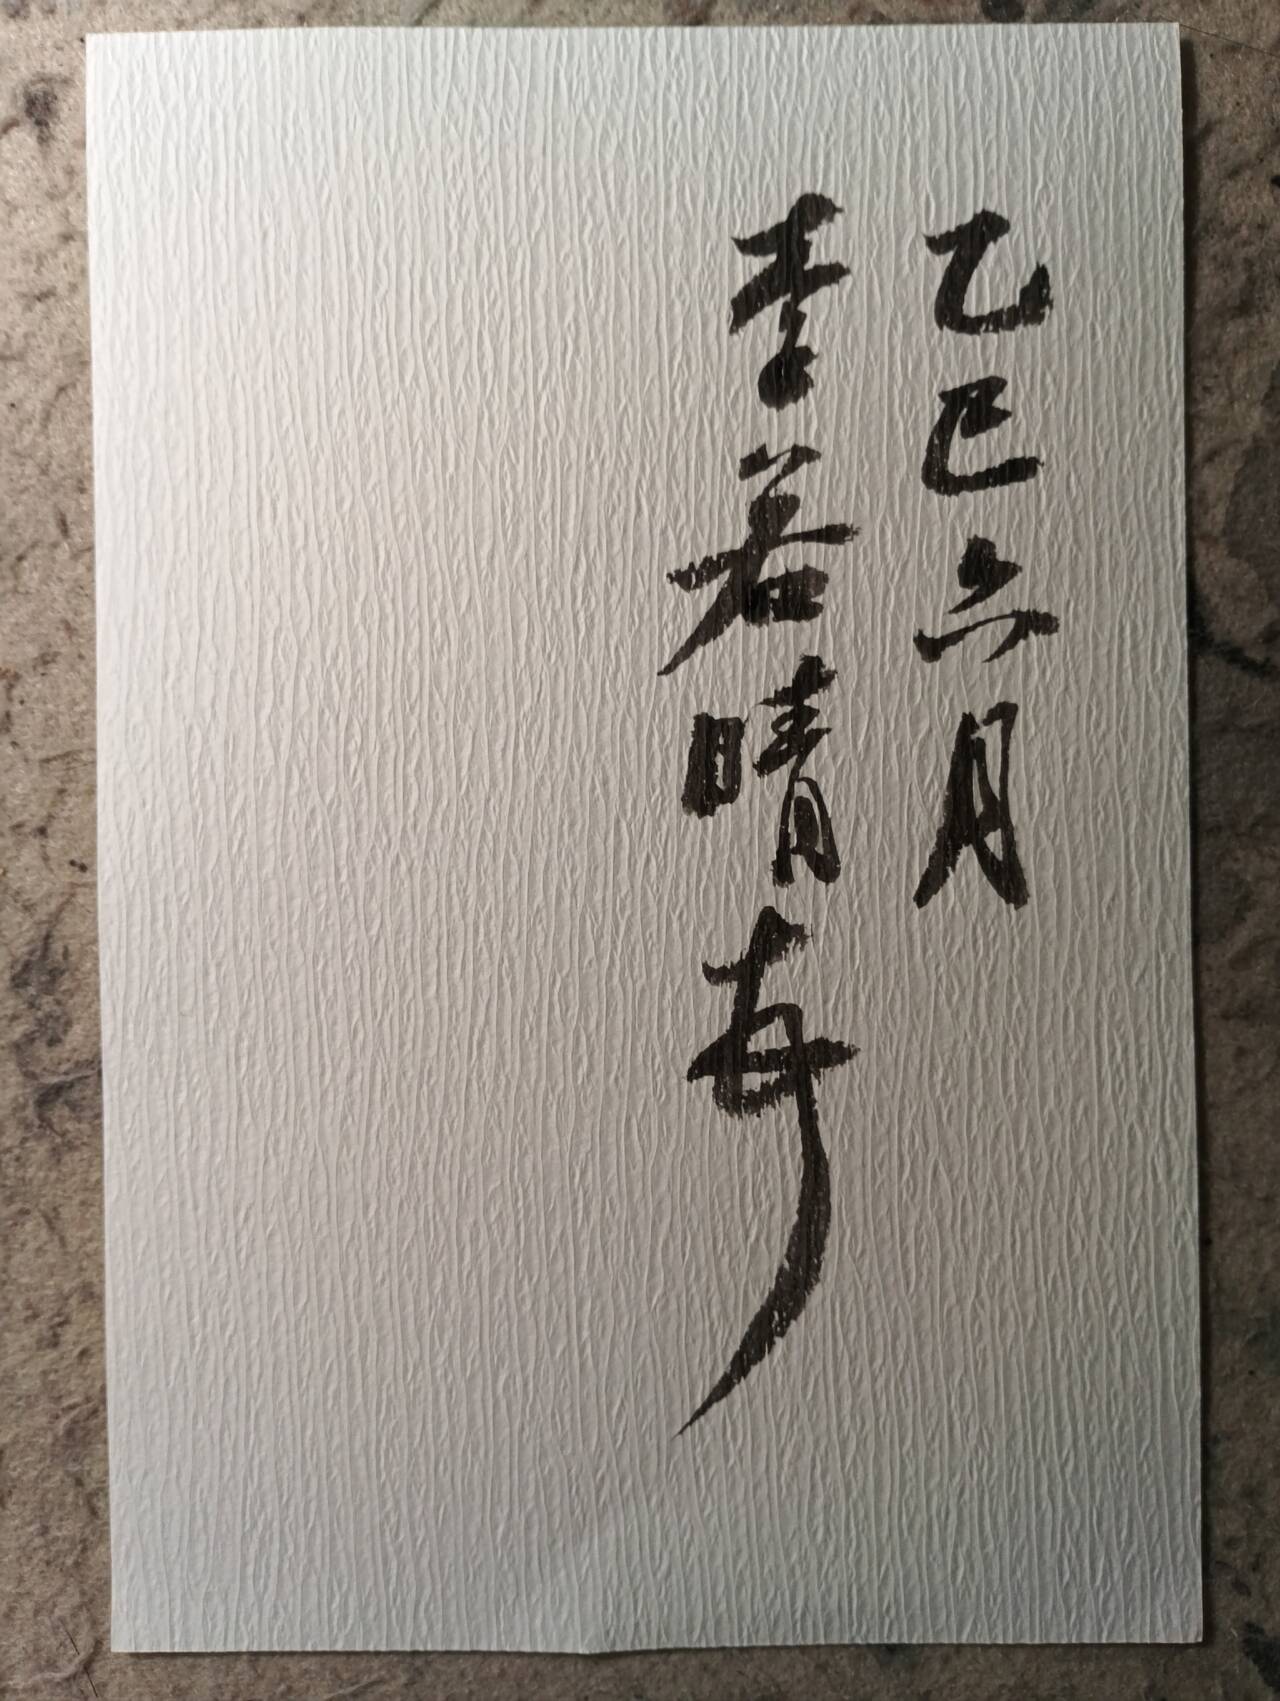 乙巳六月
李若晴書